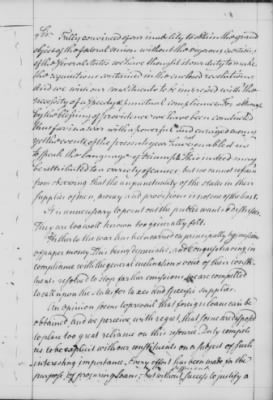 Sir Fully convinced of our inability to attain the grand
object of the federal union without the vigorous exertions
of the several states we have thought it our duty to make
the requisitions contained in the enclosed resolutions
and we wish our constituents to be impressed with the
necessity of a speedy & punctual compliance. For although
by the blessing of providence we have been conducted
thus far in a war with a powerful and enraged enemy
yet the events of the present year have enabled us
to speak the language of triumph. This indeed may
be attributed to a variety of causes but we must refrain
from observing that the unpunctuality of the states in their
supplies of men, money and provisions is not one of the least.
It is unnecessary to point out the public wants & distresses
They are too well known too generally felt.
Hitherto the war has been carried on principally by emission
of paper money. This being depreciated, and Congress having in
compliance with the general inclinations & voice of their consti-
tuents resolved to stop further emissions, we are compelled
to call upon the states for taxes and specific supplies.
An opinion seems to prevail that foreign loans can be
obtained, and we perceive with regret, that some are disposed
to place too great reliance on this resource. Duty compels
us to be explicit with our constituents on a subject of such
interesting importance. Every effort has been made for the
purpose of procuring loans, but without sufficient success to justify a